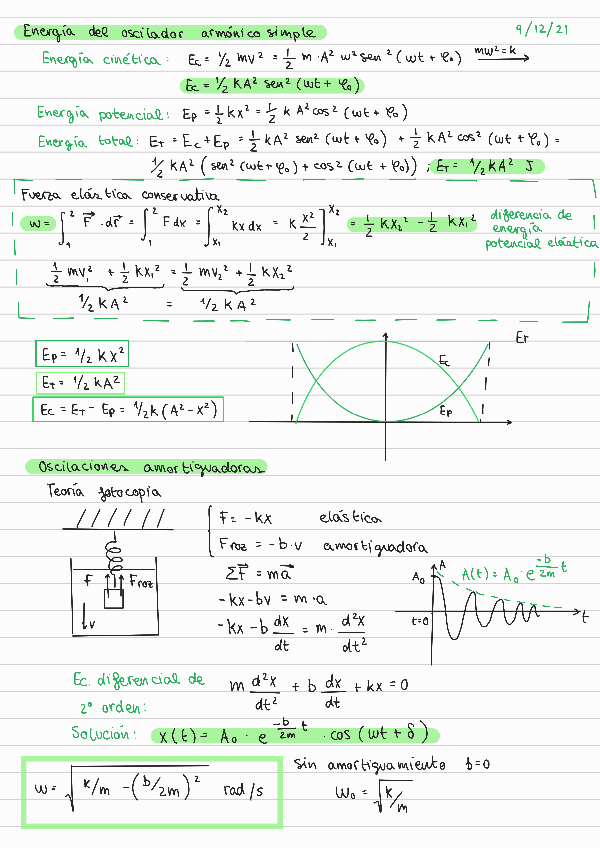 Energía del oscilador armónico simple 9/12/21
Energía cinética: Ec = 1/2 mv² = 1/2 m · A² w² sen² (wt + φ₀) mw²=k →
Ec = 1/2 KA² sen² (wt + φ₀)
Energía potencial: Ep = 1/2 kx² = 1/2 k A² cos² (wt + φ₀)
Energía total: ET = Ec + Ep = 1/2 kA² sen² (wt + φ₀) + 1/2 KA² cos² (wt + φ₀) =
1/2 KA² (sen² (wt + φ₀) + cos² (wt + φ₀)) ; ET = 1/2 KA² J
Fuerza elástica conservativa
w = ∫₁² F⃗ · dr⃗ = ∫₁² F dx = ∫x₁^x₂ Kx dx = K x²/2 ]x₁^x₂ = 1/2 KX₂² - 1/2 KX₁² diferencia de energía potencial elástica
1/2 mv₁² + 1/2 KX₁² = 1/2 mv₂² + 1/2 KX₂²
1/2 KA² = 1/2 KA²
Ep = 1/2 KX²
ET = 1/2 KA²
Ec = ET - Ep = 1/2 k (A² - x²)
ET
Ec
Ep
Oscilaciones amortiguadoras
Teoría fotocopia
F Froz
v
F = -kx elástica
Froz = -b·v amortiguadora
ΣF⃗ = ma⃗
-kx-bv = m·a
-kx - b dx/dt = m · d²x/dt²
A
A₀
A(t) = A₀ · e^(-b/2m t)
t=0
t
Ec. diferencial de
2º orden:
m d²x/dt² + b dx/dt + kx = 0
Solución: x(t) = A₀ · e^(-b/2m t) · cos (wt + δ)
w = √(k/m - (b/2m)²) rad/s
sin amortiguamiento b=0
w₀ = √(k/m)